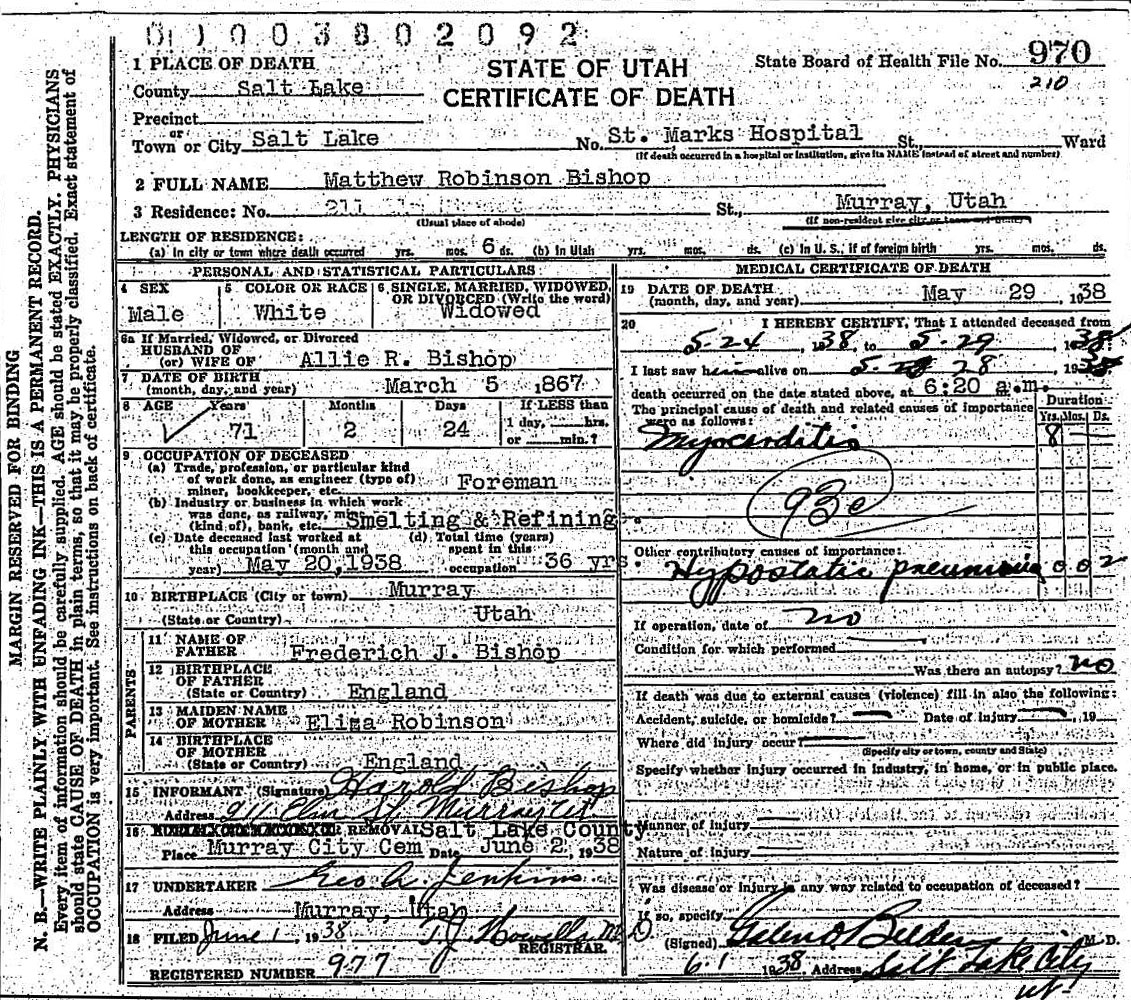 01003802092
MARGIN RESERVED FOR BINDING
N. B.—WRITE PLAINLY WITH UNFADING INK—THIS IS A PERMANENT RECORD.
Every item of information should be carefully supplied. AGE should be stated EXACTLY. PHYSICIANS
should state CAUSE OF DEATH in plain terms, so that it may be properly classified. Exact statement of
OCCUPATION is very important. See instructions on back of certificate.
STATE OF UTAH
CERTIFICATE OF DEATH
State Board of Health File No. 970
210
1 PLACE OF DEATH
County Salt Lake
Precinct
or
Town or City Salt Lake No. St. Marks Hospital St., Ward
(If death occurred in a hospital or institution, give its NAME instead of street and number)
2 FULL NAME Matthew Robinson Bishop
3 Residence: No. 211 St., Murray, Utah
(Usual place of abode) (If non-resident give city or town and State)
LENGTH OF RESIDENCE:
(a) In city or town where death occurred yrs. mos. 6 ds. (b) In Utah yrs. mos. ds. (c) In U. S., if of foreign birth yrs. mos. ds.
PERSONAL AND STATISTICAL PARTICULARS
4 SEX 5 COLOR OR RACE 6 SINGLE, MARRIED, WIDOWED,
OR DIVORCED (Write the word)
Male White Widowed
6a If Married, Widowed, or Divorced
HUSBAND OF
(or) WIFE OF Allie R. Bishop
7 DATE OF BIRTH
(month, day, and year) March 5 1867
8 AGE Years Months Days If LESS than
71 2 24 1 day, hrs.
or min.?
9 OCCUPATION OF DECEASED
(a) Trade, profession, or particular kind
of work done, as engineer (type of)
miner, bookkeeper, etc. Foreman
(b) Industry or business in which work
was done, as railway, mine
(kind of), bank, etc. Smelting & Refining
(c) Date deceased last worked at (d) Total time (years)
this occupation (month and spent in this
year) May 20, 1938 occupation 36 yrs.
10 BIRTHPLACE (City or town) Murray
(State or Country) Utah
PARENTS
11 NAME OF
FATHER Frederich J. Bishop
12 BIRTHPLACE
OF FATHER
(State or Country) England
13 MAIDEN NAME
OF MOTHER Eliza Robinson
14 BIRTHPLACE
OF MOTHER
(State or Country) England
15 INFORMANT (Signature) Harold Bishop
Address 211 Elm St. Murray Ut.
16 OR REMOVAL Salt Lake County
Place Murray City Cem Date June 2, 1938
17 UNDERTAKER Geo A. Jenkins
Address Murray, Utah
18 FILED June 1, 1938 T. J. Howells M.D
REGISTRAR
REGISTERED NUMBER 977
MEDICAL CERTIFICATE OF DEATH
19 DATE OF DEATH
(month, day, and year) May 29, 1938
20 I HEREBY CERTIFY, That I attended deceased from
5-24 1938, to 5-29 1938
I last saw him alive on 5- 28, 1938
death occurred on the date stated above, at 6:20 a.m.
The principal cause of death and related causes of importance
were as follows: Duration
Yrs. Mos. Ds.
Myocarditis 8 —
93c
Other contributory causes of importance:
Hypostatic pneumonia 0 0 2
If operation, date of no
Condition for which performed
Was there an autopsy? no
If death was due to external causes (violence) fill in also the following:
Accident, suicide, or homicide? — Date of injury —, 19
Where did injury occur?
(Specify city or town, county and State)
Specify whether injury occurred in industry, in home, or in public place.
Manner of injury
Nature of injury
Was disease or injury in any way related to occupation of deceased?
If so, specify
(Signed) M. D.
6-1 1938 Address Salt Lake City
Ut.